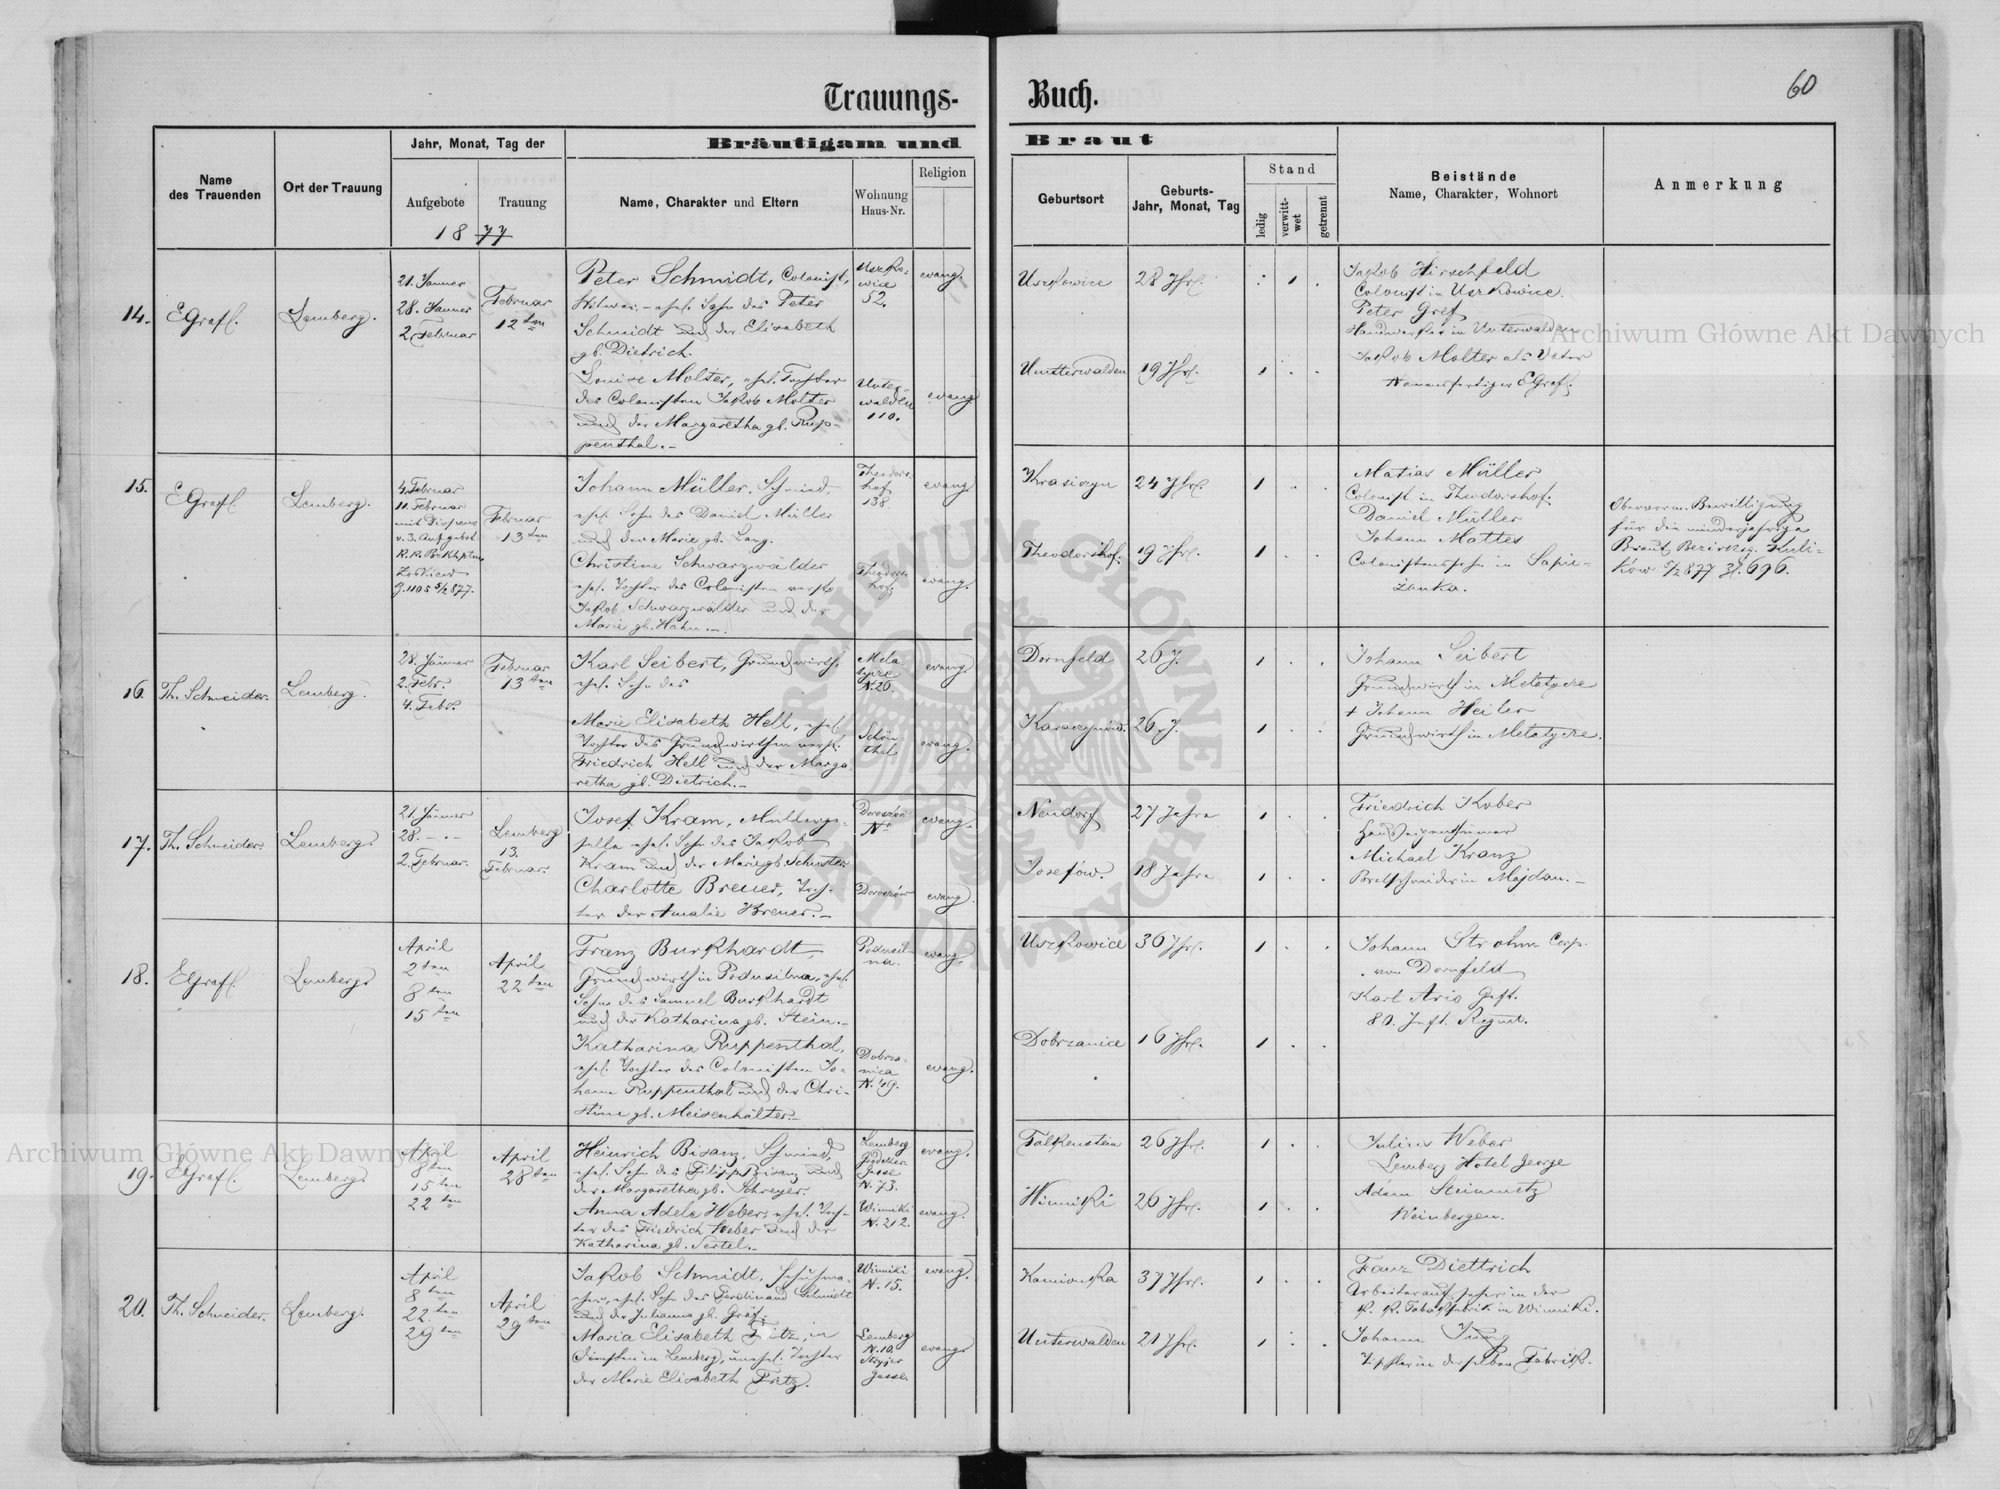 Trauungs-
Buch.
60
Name
des Trauenden
Ort der Trauung
Jahr, Monat, Tag der
Aufgebote
Trauung
1877
Bräutigam und
Name, Charakter und Eltern
Wohnung
Haus-Nr.
Religion
Braut
Geburtsort
Geburts-
Jahr, Monat, Tag
Stand
ledig
verwitt-
wet
getrennt
Beistände
Name, Charakter, Wohnort
Anmerkung
14.
EGrafl.
Lemberg.
21. Jänner
28. Jänner
2. Februar
Februar
12ten
Peter Schmidt, Colonist,
Witwer, - ehel. Sohn des Peter
Schmidt und der Elisabeth
gb. Dietrich.
Louise Molter, ehel. Tochter
des Colonisten Jakob Molter
und der Margaretha gb. Rup-
penthal.-
Uszko-
wice
52.
Unter-
walden
110.
evang.
evang.
Uszkowice
28 Jhr.
Unterwalden
19 Jhr.
Jakob Hirschfeld
Colonist in Uszkowice.
Peter Gref
Handwerker in Unterwalden
Jakob Molter als Vater
Namensfertiger EGrafl.
15.
EGrafl.
Lemberg.
4. Februar
11. Februar
mit Dispens
v. 3. Aufgebot
Februar
13ten
Johann Müller, Schmied,
ehel. Sohn des Daniel Müller
und der Marie gb. Lang.
Christine Schwarzwälder
ehel. Tochter des Colonisten verst.
Jakob Schwarzwälder und der
Marie gb. Hahn.-
Theodors-
hof
138.
Theodors-
hof
evang.
evang.
Krasiczyn
24 Jhr.
Theodorshof.
19 Jhr.
Matias Müller
Colonist in Theodorshof.
Daniel Müller
Johann Mattes
Colonistenssohn in Sapie-
żanka.
Oberverm. Bewilligung
für die minderjährige
Braut Bezirksg. Kuli-
ków 5/2 877 Zl. 696.
16.
Th. Schneider.
Lemberg.
28. Jänner
2. Febr.
4. Febr.
Februar
13ten
Karl Seibert, Grundwirth,
ehel. Sohn des
Marie Elisabeth Hell, ehel.
Tochter des Grundwirthen verst.
Friedrich Hell und der Marga-
retha gb. Dietrich.-
N. 26.
Schön-
thal
evang.
evang.
Dornfeld
26 J.
26 J.
Johann Seibert
Grundwirth in Melatycze
+ Johann Heiler
Grundwirth in Melatycze.
17.
Th. Schneider.
Lemberg.
21. Jänner
28. - . -
2. Februar.
Lemberg
13.
Februar.
Josef Kram, Müllerge-
selle ehel. Sohn des Jakob
Kram und der Marie gb. Schuster
Charlotte Breuer, Toch-
ter der Amalie Breuer.-
Doroszów
No
Doroszów
evang.
evang.
Neudorf
27 Jahre
Josefów.
18 Jahre
Friedrich Kober
Hauseigenthümer
Michael Kranz
Brettschneider in Majdan.-
18.
EGrafl.
Lemberg
April
2ten
8ten
15ten
April
22ten
Franz Burkhardt
Grundwirth in Podusilna, ehel.
Sohn des Samuel Burkhardt
und der Katharina gb. Stein.-
Katharina Ruppenthal,
ehel. Tochter des Colonisten Jo-
hann Ruppenthal und der Chri-
stine gb. Meisenhälter.-
Podusil-
na.
Dobrza-
nica
N. 49.
evang.
evang.
Uszkowice
36 Jhr.
Dobrzanica
16 Jhr.
Johann Strohm Corp.
von Dornfeld
Karl Ario Geft.
80. Inft. Regmt.
19.
EGrafl.
Lemberg
April
8ten
15ten
22ten
April
28ten
Heinrich Bisanz, Schmied,
ehel. Sohn des Filipp Bisanz und
der Margaretha gb. Schreyer.
Anna Adele Weber, ehel. Toch-
ter des Friedrich Weber und der
Katharina gb. Sertel.-
Lemberg
Gasse
N. 73.
Winniki
N. 212.
evang.
evang.
Falkenstein
26 Jhr.
Winniki
26 Jhr.
Julius Weber
Lemberg Hotel George
Adam Steinmetz
Weinbergen.
20.
Th. Schneider.
Lemberg.
April
8ten
22ten
29ten
April
29ten
Jakob Schmidt, Schuhma-
cher, ehel. Sohn des Ferdinand Schmidt
und der Juliana gb. Gräf;
Maria Elisabeth Fritz, in
Diensten in Lemberg, unehel. Tochter
der Marie Elisabeth Fritz.
Winniki
N. 15.
Lemberg
N. 10
Stryjer
Gasse.
evang.
evang.
Kamionka
37 Jhr.
Unterwalden
21 Jhr.
Franz Diettrich
Arbeiteraufseher in der
k. k. Tabakfabrik in Winniki.
Johann Jung
Tischler in derselben Fabrik.
Archiwum Główne Akt Dawnych
Archiwum Główne Akt Dawnych
ARCHIWUM GŁÓWNE AKT DAWNYCH